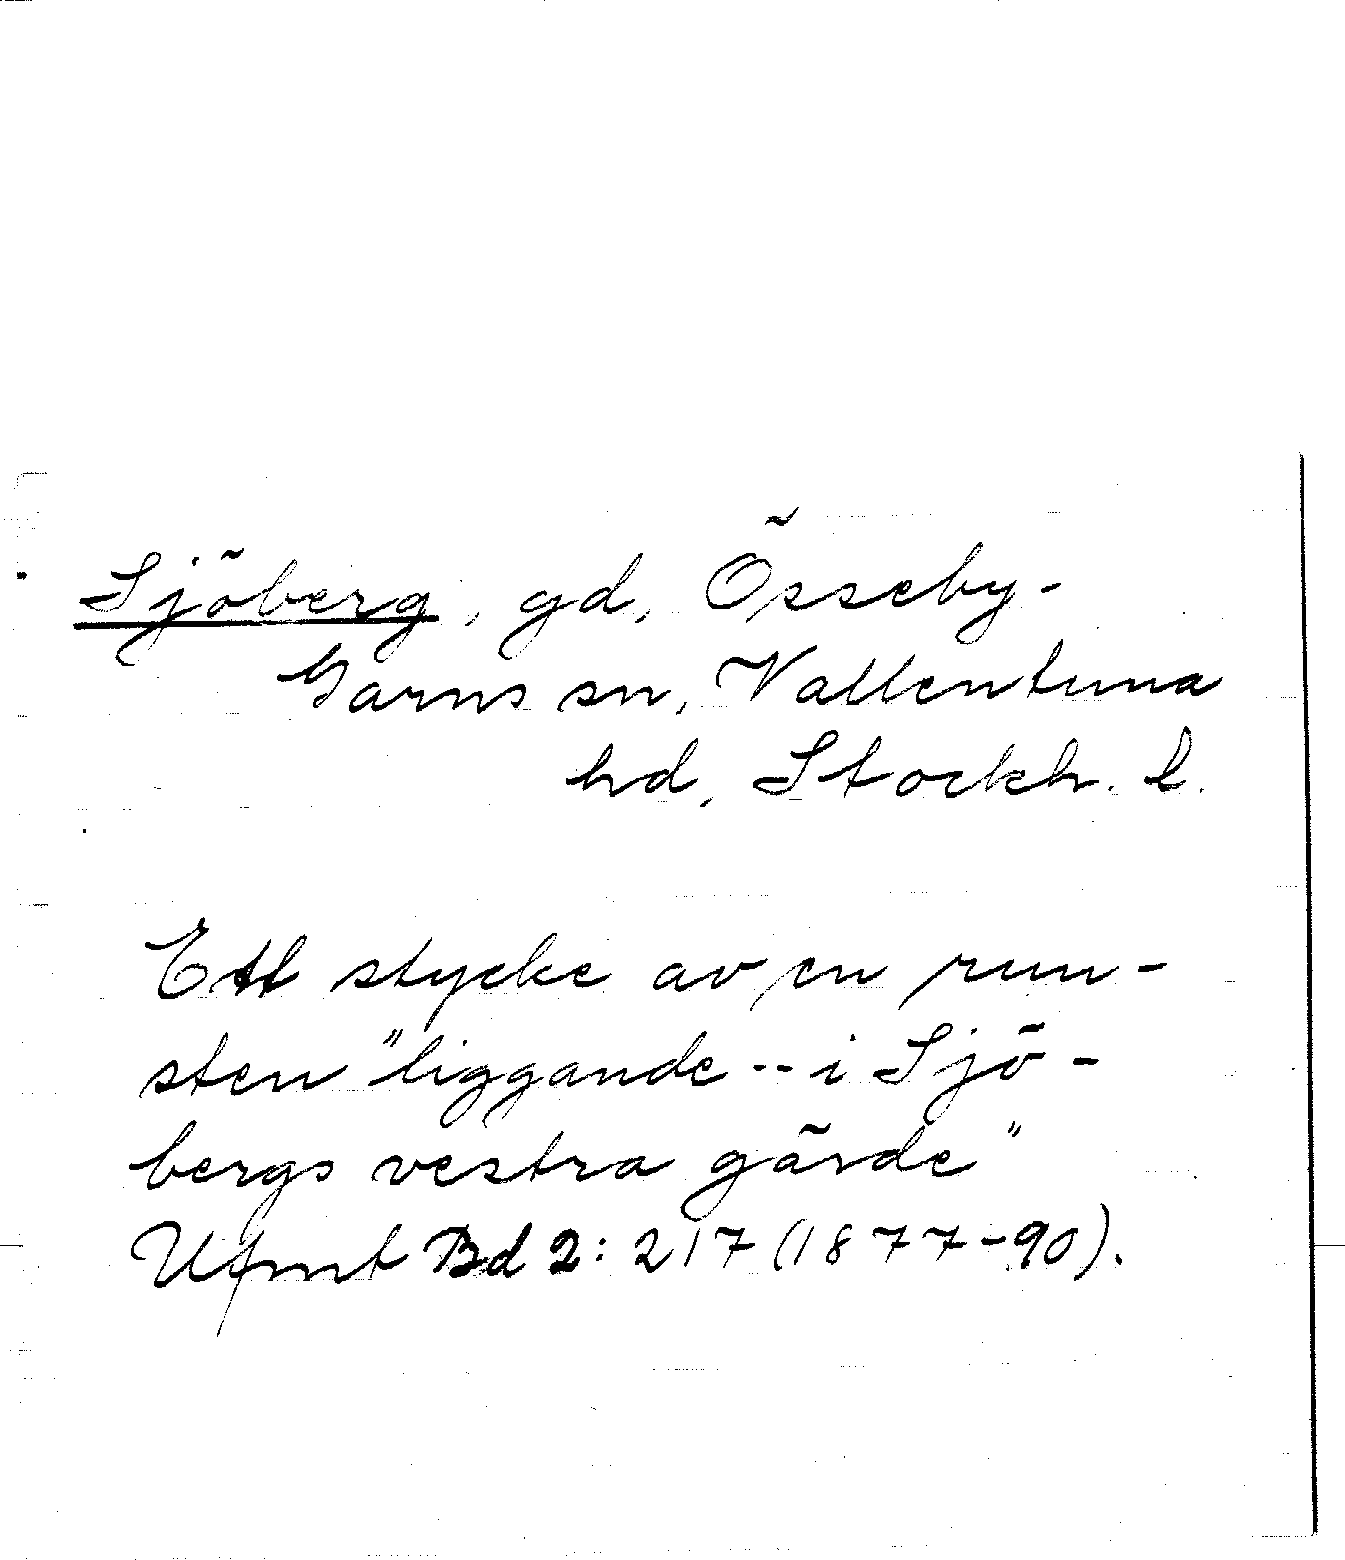 Sjöberg, gd, Össeby-
Garns sn, Vallentuna
hd, Stockh. l.
Ett stycke av en run-
sten "liggande -- i Sjö-
bergs vestra gärde"
Ufmt Bd 2: 217 (1877-90).